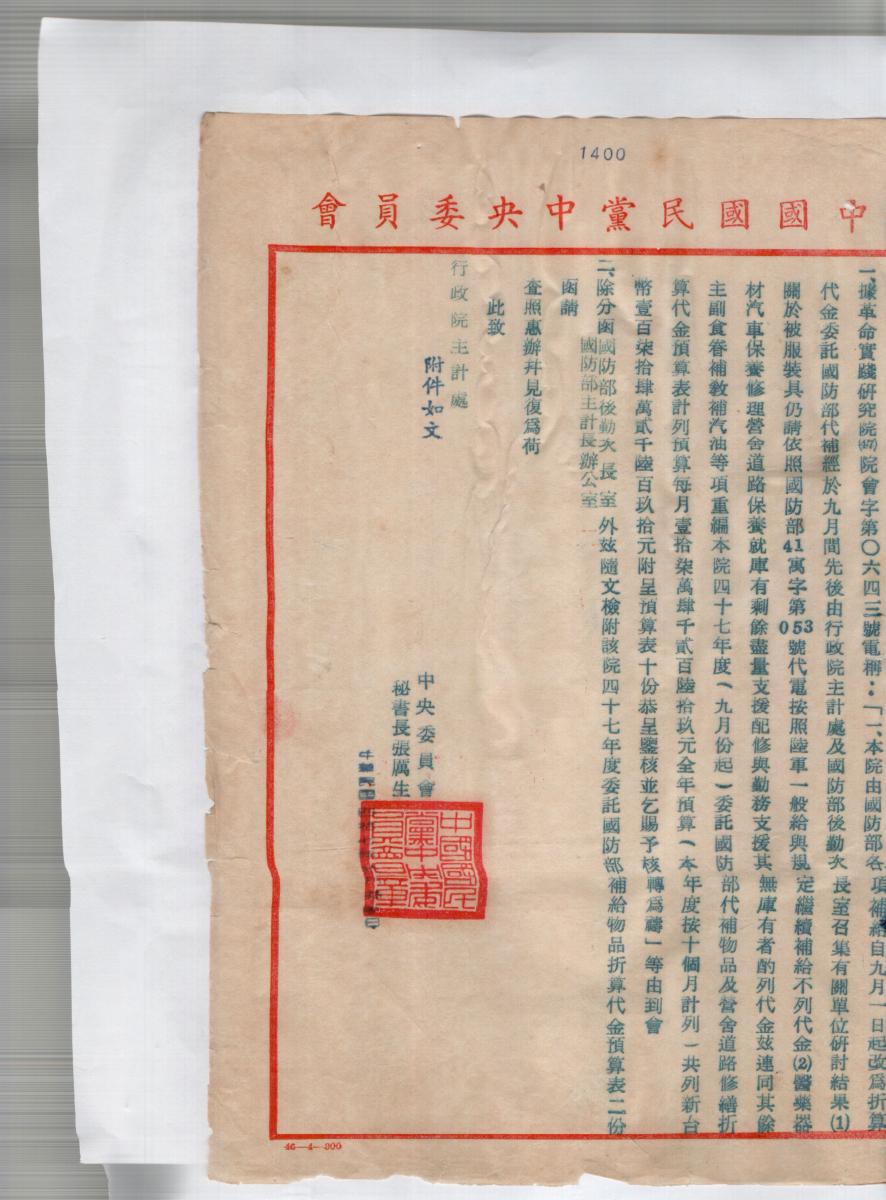 1400
中國國民黨中央委員會
一、據革命實踐研究院(47)院會字第〇六四三號電稱：「一、本院由國防部各項補給自九月一日起改爲折算
代金委託國防部代補經於九月間先後由行政院主計處及國防部後勤次長室召集有關單位研討結果(1)
關於被服裝具仍請依照國防部41寓字第053號代電按照陸軍一般給與規定繼續補給不列代金(2)醫藥器
材汽車保養修理營舍道路保養就庫有剩餘盡量支援配修與勤務支援其無庫有者酌列代金茲連同其餘
主副食眷補教補汽油等項重編本院四十七年度(九月份起)委託國防部代補物品及營舍道路修繕折
算代金預算表計列預算每月壹拾柒萬肆千貳百陸拾玖元全年預算(本年度按十個月計列)共列新台
幣壹百柒拾肆萬貳千陸百玖拾元附呈預算表十份恭呈鑒核並乞賜予核轉爲禱」等由到會
二、除分函國防部後勤次長室國防部主計長辦公室外茲隨文檢附該院四十七年度委託國防部補給物品折算代金預算表二份
函請
查照惠辦幷見復爲荷
此致
行政院主計處
附件如文
中央委員會
秘書長張厲生
46—4—300